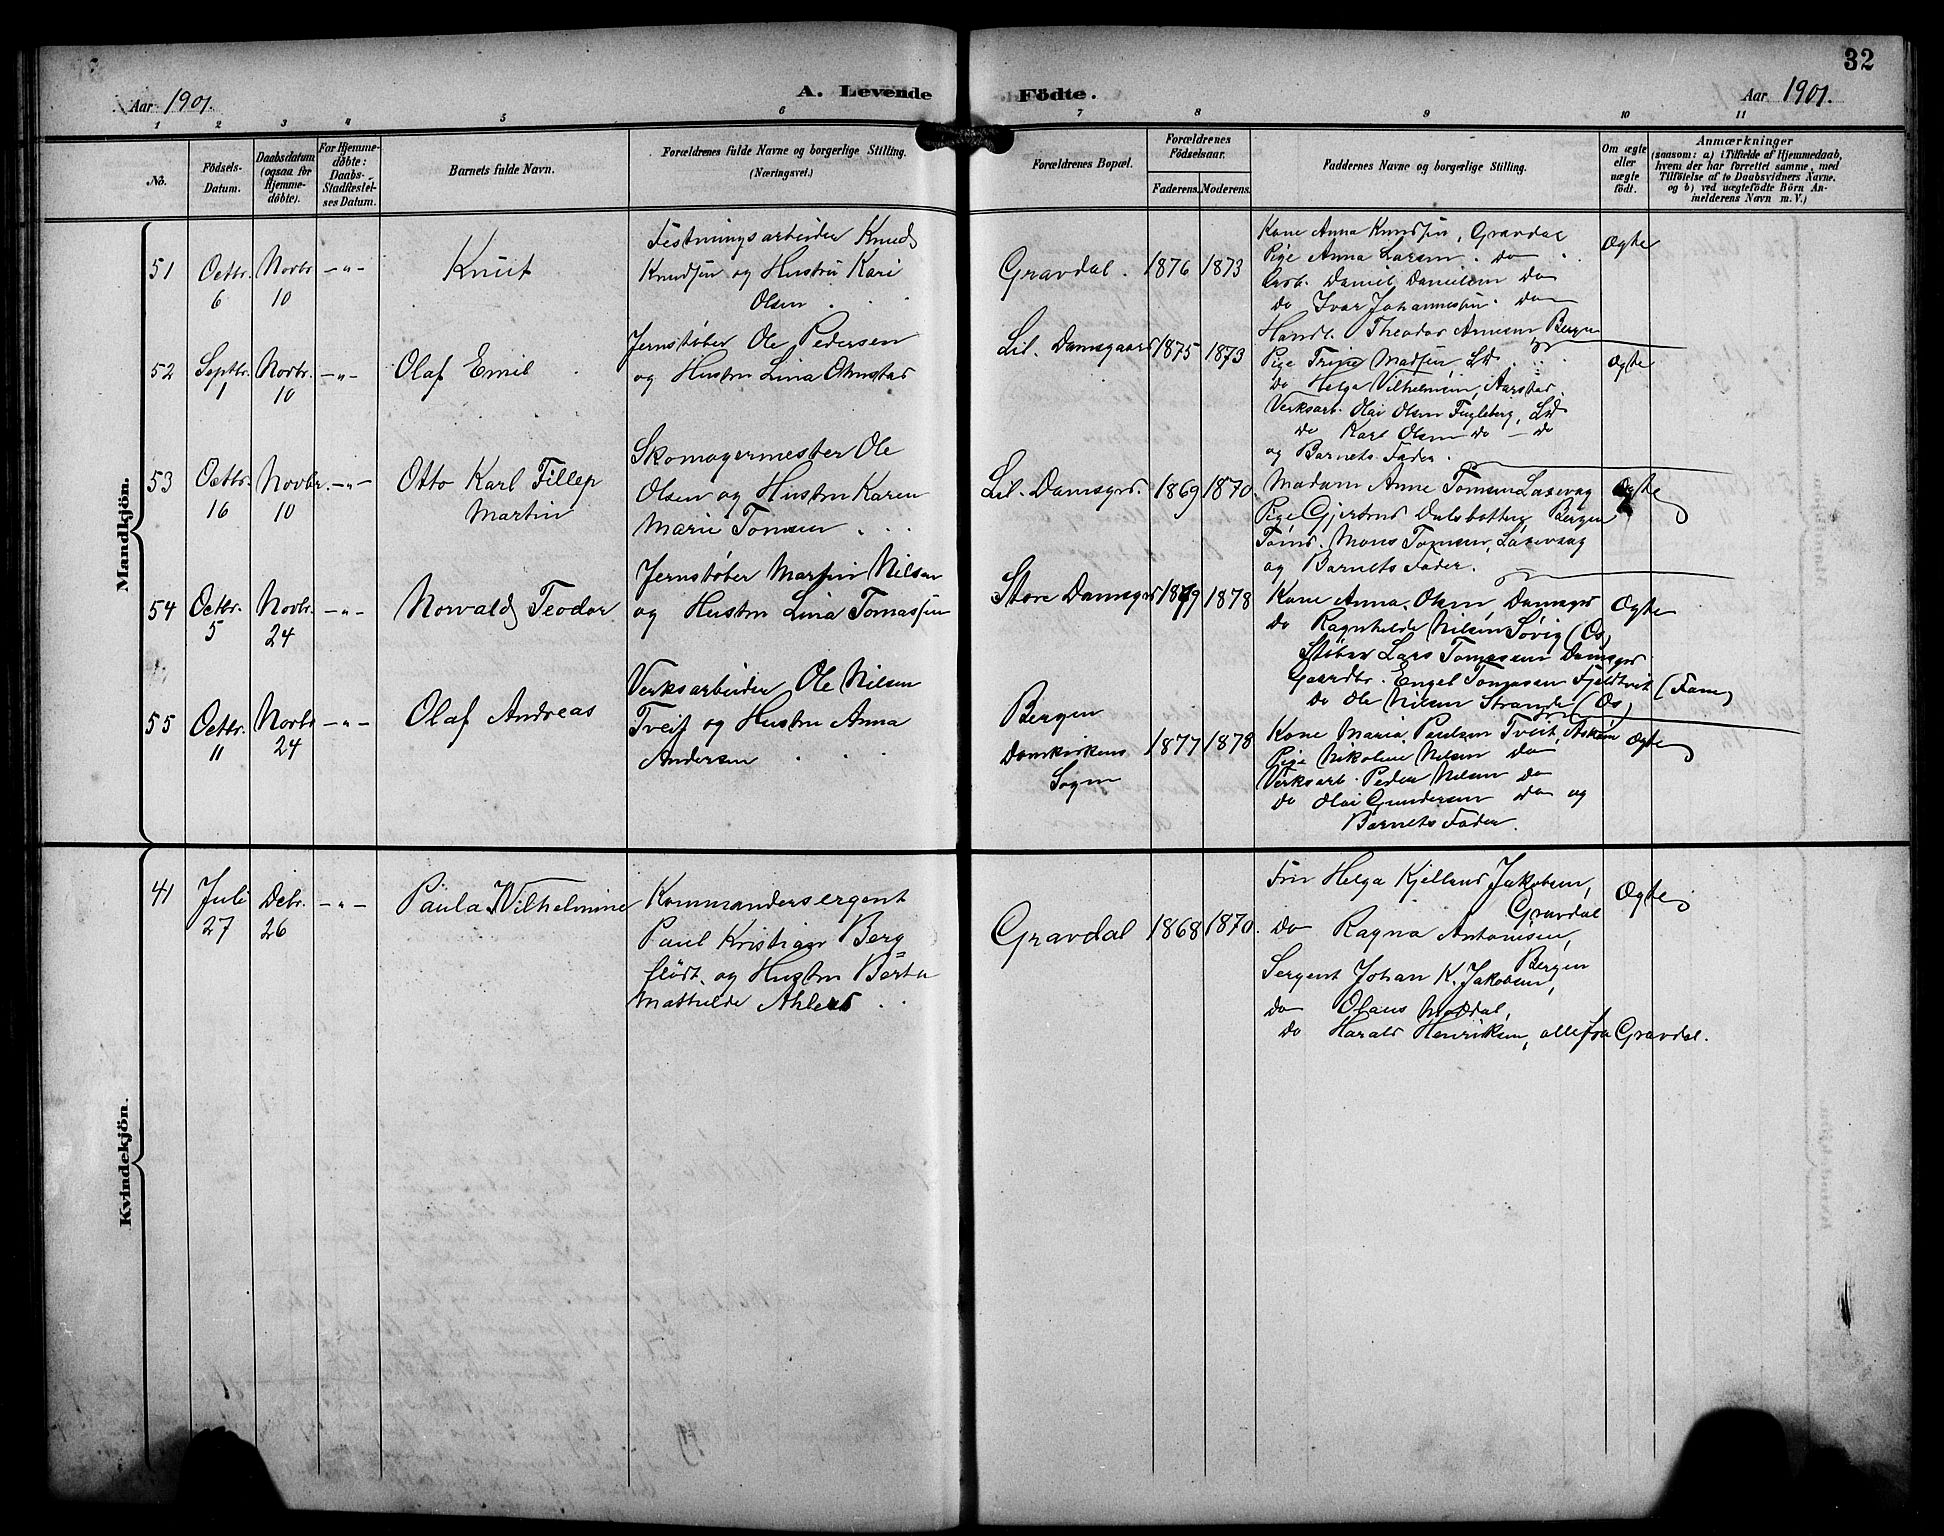 32
Aar 1901.
A. Levende Födte.
Aar 1901.
1 2 3 4 5 6 7 8 9 10 11
No.
Födsels-Datum.
Daabsdatum (ogsaa for Hjemme-döbte).
For Hjemme-döbte: Daabs-Stadfæstel-ses Datum.
Barnets fulde Navn.
Forældrenes fulde Navne og borgerlige Stilling. (Næringsvei.)
Forældrenes Bopæl.
Forældrenes Födselsaar.
Faderens. Moderens.
Faddernes Navne og borgerlige Stilling.
Om ægte eller uægte födt.
Anmærkninger
(saasom: a) i Tilfælde af Hjemmedaab, hvem der har forrettet samme, med Tilföielse af to Daabsvidners Navne, og b) ved uægtefödte Börn An-melderens Navn m. V.)
Mandkjön.
51 Octbr. 6 Novbr. 10 -"- Knut
Festningsarbeider Knud
Knudsen og Hustru Kari
Olsen
Gravdal. 1876 1873
Kone Anna Knudsen, Gravdal
Pige Anna Larsen. do
Arb. Daniel Danielsen do
do Ivar Johannessen. do
Ægte
52 Septbr. 1 Novbr. 10 -"- Olaf Emil
Jernstøber Ole Pedersen
og Hustru Lina Olmstad
Lil. Damsgaard 1875 1873
Handl. Theodor Arnesen Bergen
Pige Trine Madsen, Lid
do Helga Vilhelmsen, Aarstad.
Verksarb. Olai Olsen Fugleberg, Lid
do Karl Olsen do - do
og Barnets Fader.
Ægte
53 Octbr. 16 Novbr. 10 -"- Otto Karl Tillep
Martin
Skomagermester Ole
Olsen og Hustru Karen
Marie Tomsen
Lil. Damsgrd. 1869 1870
Madam Anne Tomsen Laxevag
Pige Gjertrud Dalsbotten Bergen
Tømd. Mons Tomsen, Laxevaag
og Barnets Fader.
Ægte
54 Octbr. 5 Novbr. 24 -"- Norvald Teodor
Jernstøber Martin Nilsen
og Hustru Lina Tomassen
Store Damsgrd 1879 1878
Kone Anna Olsen Damsgrd
do Ragnhilde Nilsen Søvig (Os)
Støber Lars Tomassen Damsgrd
Gaardbr. Engel Tomassen Fjeldtvit (Fane)
do Ole Nilsen Strande (Os)
Ægte
55 Octbr. 11 Novbr. 24 -"- Olaf Andreas
Verksarbeider Ole Nilsen
Tveit og Hustru Anna
Andersen
Bergen
Domkirkens
Sogn
1877 1878
Kone Maria Paulsen Tveit, Askøen
Pige Nikoline Nilsen do
Verksarb. Peder Nilsen do
do Olai Gundersen do og
Barnets Fader.
Ægte
Kvindekjön.
41 Juli 27 Debr. 26 -"- Paula Wilhelmine
Kommandersergent
Paul Kristian Berg
flødt og Hustru Berta
Mathilde Ahlers
Gravdal 1868 1870.
Fru Helga Kjelland Jakobsen,
Gravdal
do Ragna Antonisen,
Bergen
Sergent Johan K. Jakobsen,
do Olaus Mødal,
do Harald Henriksen, alle fra Gravdal.
Ægte